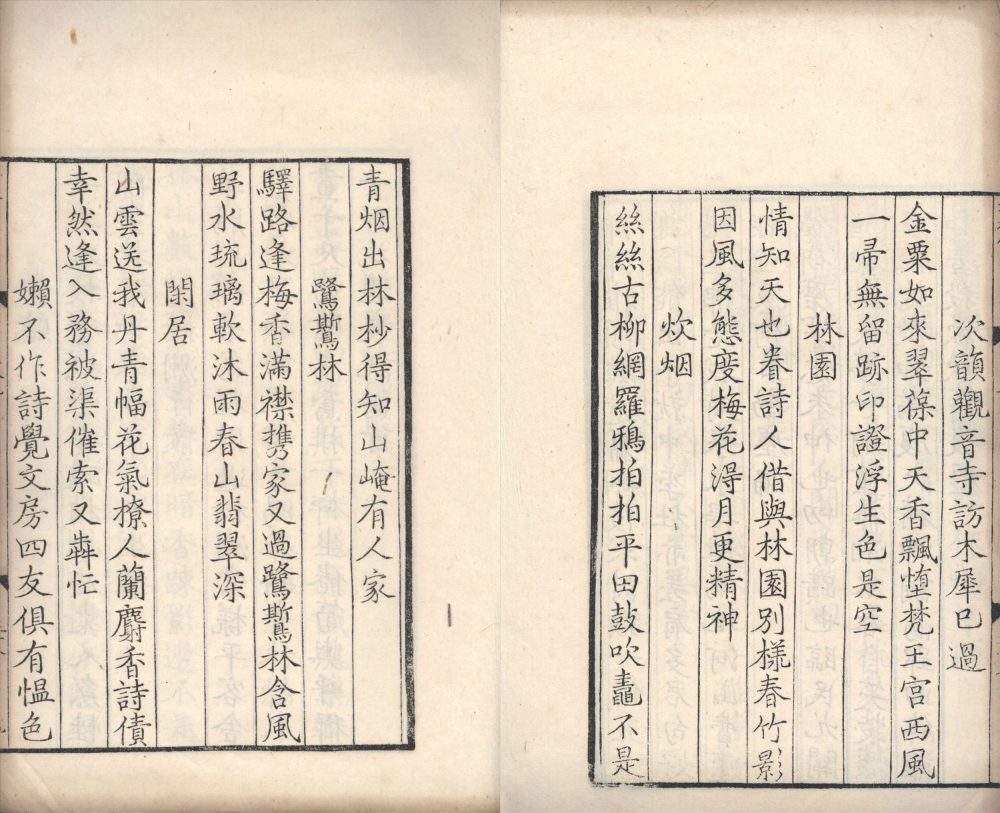 次韻觀音寺訪木犀巳過
金粟如來翠葆中天香飄墮梵王宮西風
一帚無留跡印證浮生色是空
林園
情知天也眷詩人借與林園別樣春竹影
因風多態度梅花淂月更精神
炊烟
絲絲古柳網羅鴉拍拍平田鼓吹䵷不是
青烟出林杪得知山崦有人家
鷺鷥林
驛路逢梅香滿襟携家又過鷺鷥林含風
野水琉璃軟沐雨春山翡翠深
閑居
山雲送我丹青幅花氣撩人蘭麝香詩債
幸然逢入務被渠催索又犇忙
嬾不作詩覺文房四友俱有愠色